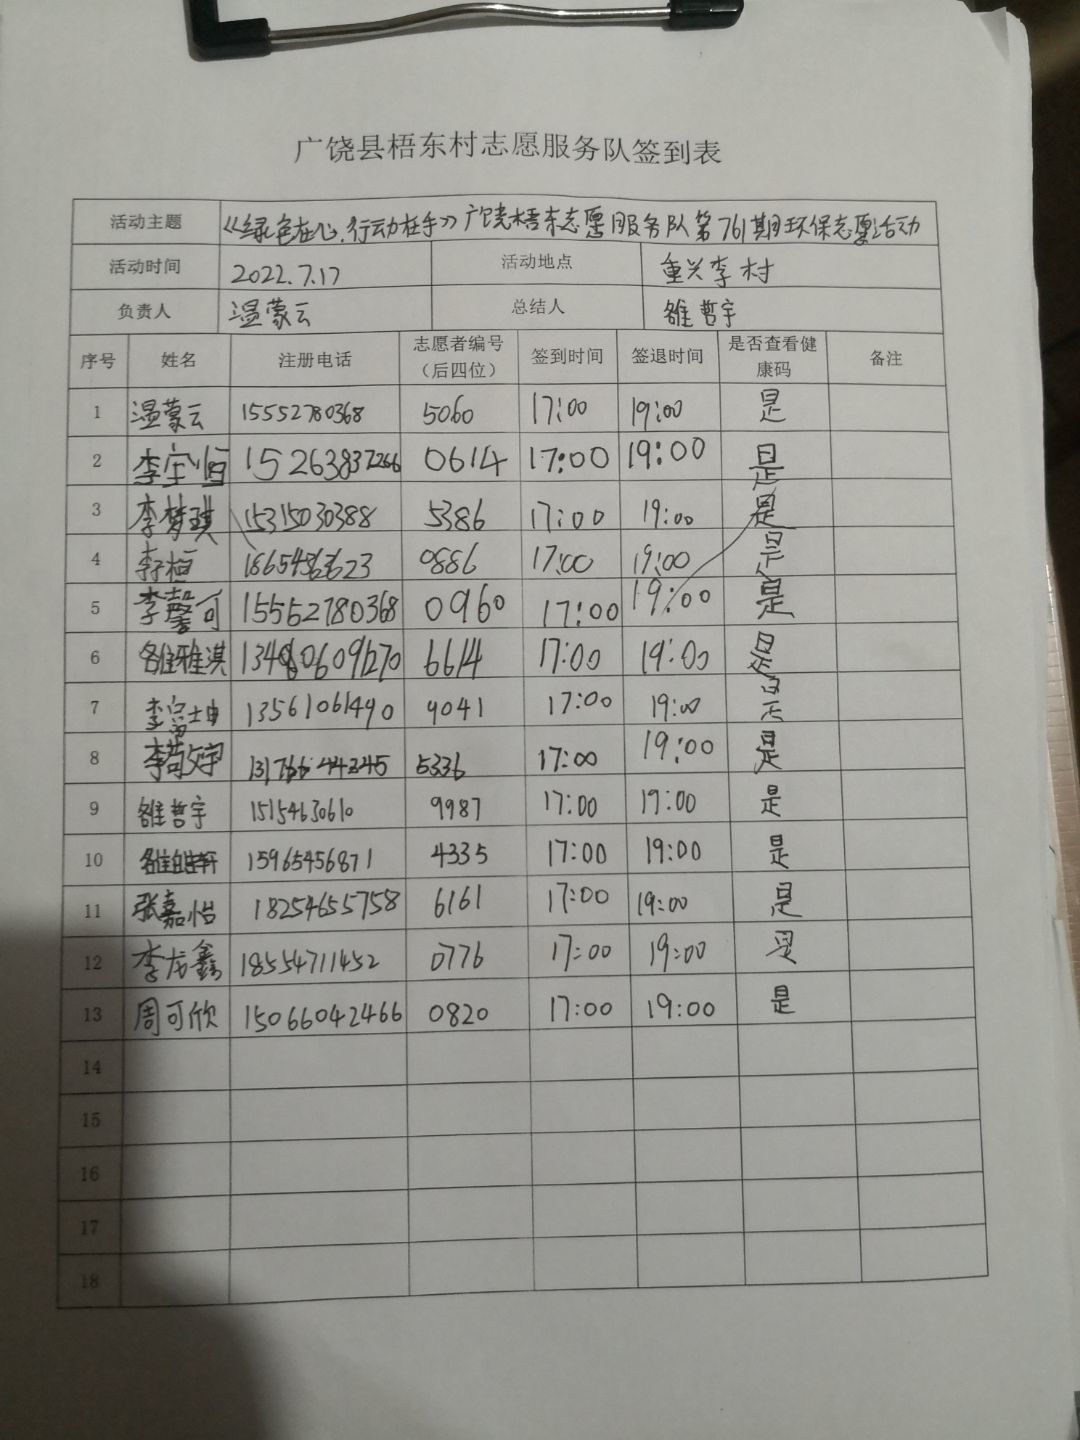 广饶县梧东村志愿服务队签到表
活动主题 《绿色在心,行动在手》广饶梧东志愿服务队第761期环保志愿活动
活动时间 2022.7.17 活动地点 重兴李村
负责人 温蒙云 总结人 雒哲宇
序号 姓名 注册电话 志愿者编号（后四位） 签到时间 签退时间 是否查看健康码 备注
1 温蒙云 15552780368 5060 17:00 19:00 是
2 李宝恒 15263837266 0614 17:00 19:00 是
3 李梦琪 15315030388 5386 17:00 19:00 是
4 0886 17:00 19:00 是
5 李馨可 15552780368 0960 17:00 19:00 是
6 雒雅淇 6614 17:00 19:00 是
7 李富坤 13561061490 9041 17:00 19:00 是
8 5336 17:00 19:00 是
9 雒哲宇 15154630610 9987 17:00 19:00 是
10 15965456871 4335 17:00 19:00 是
11 张嘉怡 18254655758 6161 17:00 19:00 是
12 李龙鑫 18554711452 0776 17:00 19:00 是
13 周可欣 15066042466 0820 17:00 19:00 是
14
15
16
17
18